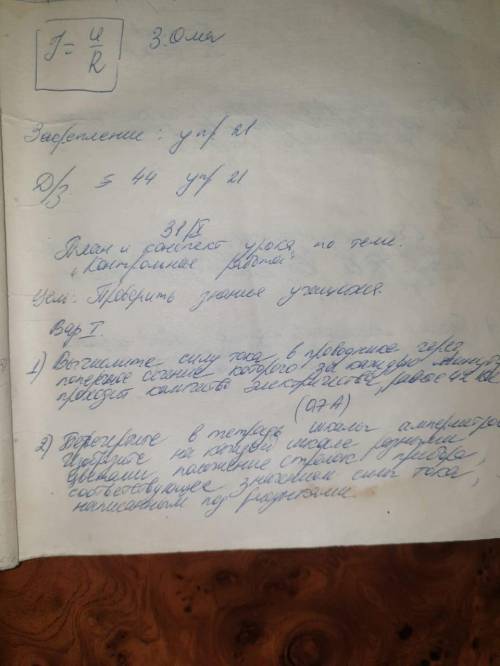 I = U/R З. Ома
Закрепление: упр 21
Д/З § 44 упр 21
31/IX
План и конспект урока по теме:
"Контрольная работа".
Цель: Проверить знания учащихся.
Вар I.
1) Вычислите силу тока в проводнике через
поперечное сечение которого за каждую минуту
проходит количество электричества, равное 42 Кл
(0,7 А)
2) Перечертите в тетрадь шкалы амперметров
Изобразите на каждой шкале разными
цветами положение стрелок прибора,
соответствующее значениям силы тока,
написанным под рисунками.